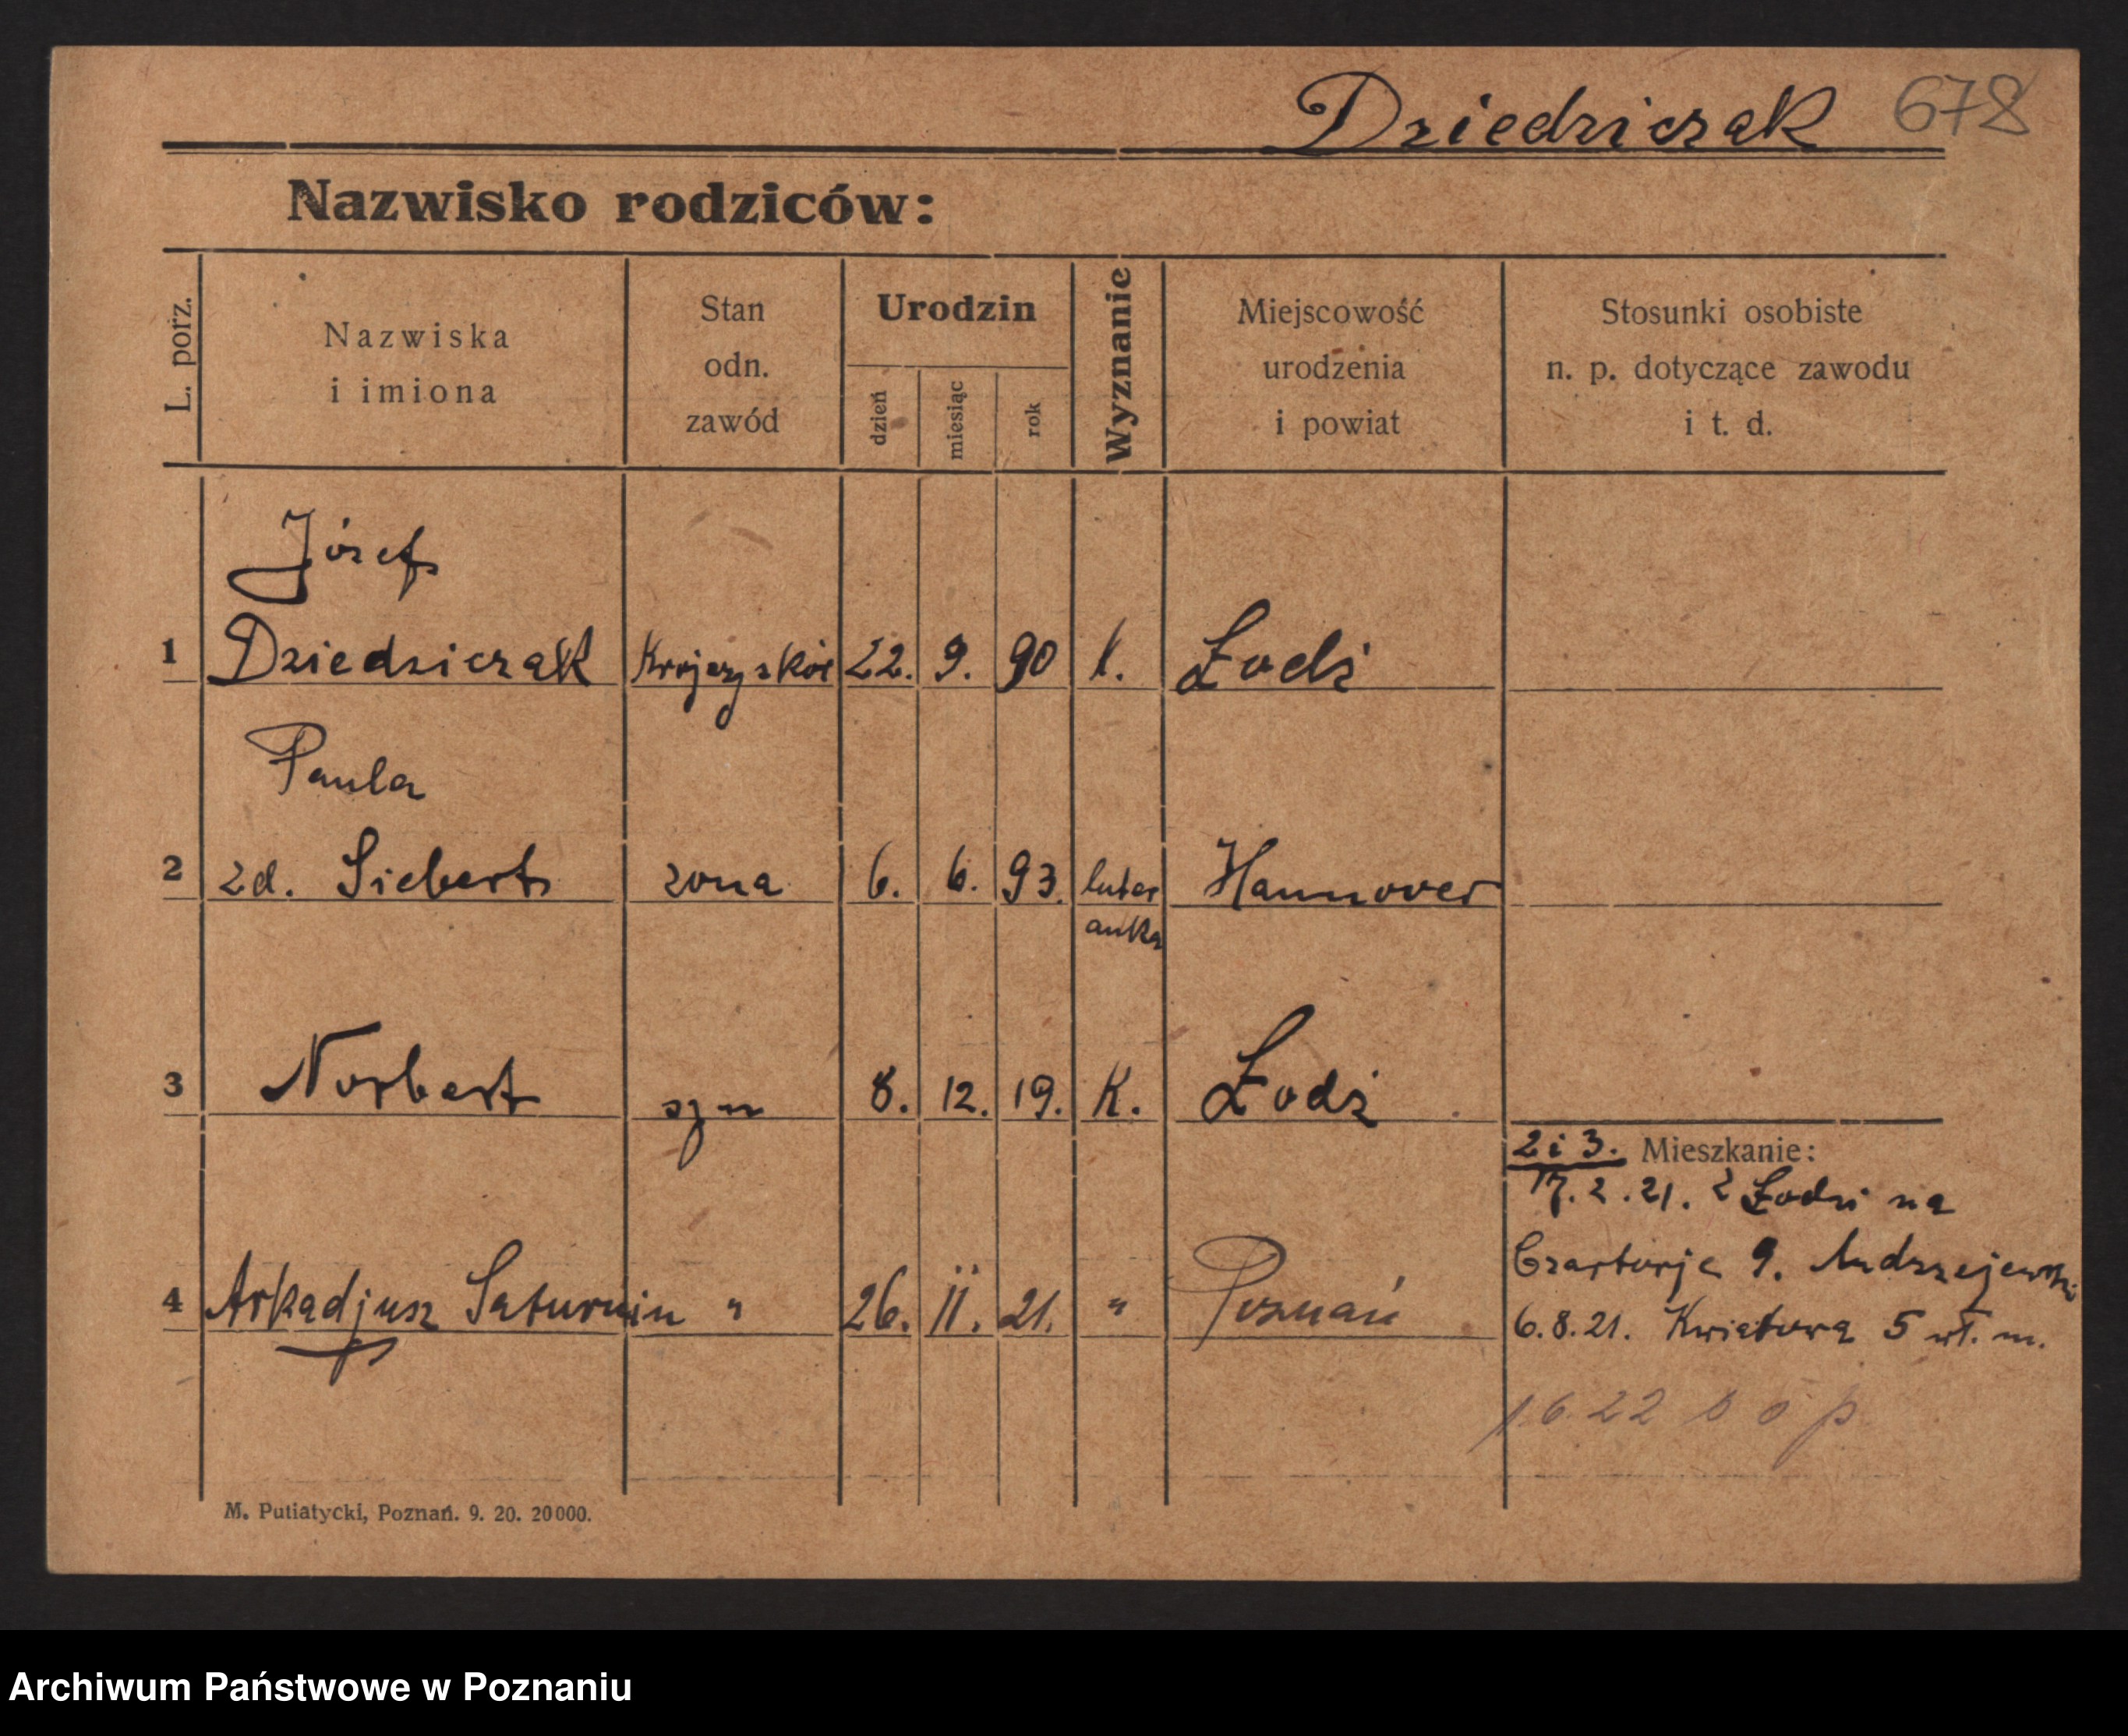 Dziedziczak 678
Nazwisko rodziców:
L. porz.
Nazwiska
i imiona
Stan
odn.
zawód
Urodzin
dzień
miesiąc
rok
Wyznanie
Miejscowość
urodzenia
i powiat
Stosunki osobiste
n. p. dotyczące zawodu
i t. d.
Józef
1 Dziedziczak 22. 9. 90 k. Łodź
Paula
2 zd. Siebert zona 6. 6. 93. luter Hannover
anka
3 Norbert syn 8. 12. 19. K. Łodź
2 i 3. Mieszkanie:
17. 2. 21. z Łodzi na
Czartorje 9. Andrzejewski
4 Arkadjusz Saturnin " 26. II. 21. " Poznań
6.8.21. Kwiatowa 5 wł. m.
1.6.22
M. Putiatycki, Poznań. 9. 20. 20000.
Archiwum Państwowe w Poznaniu